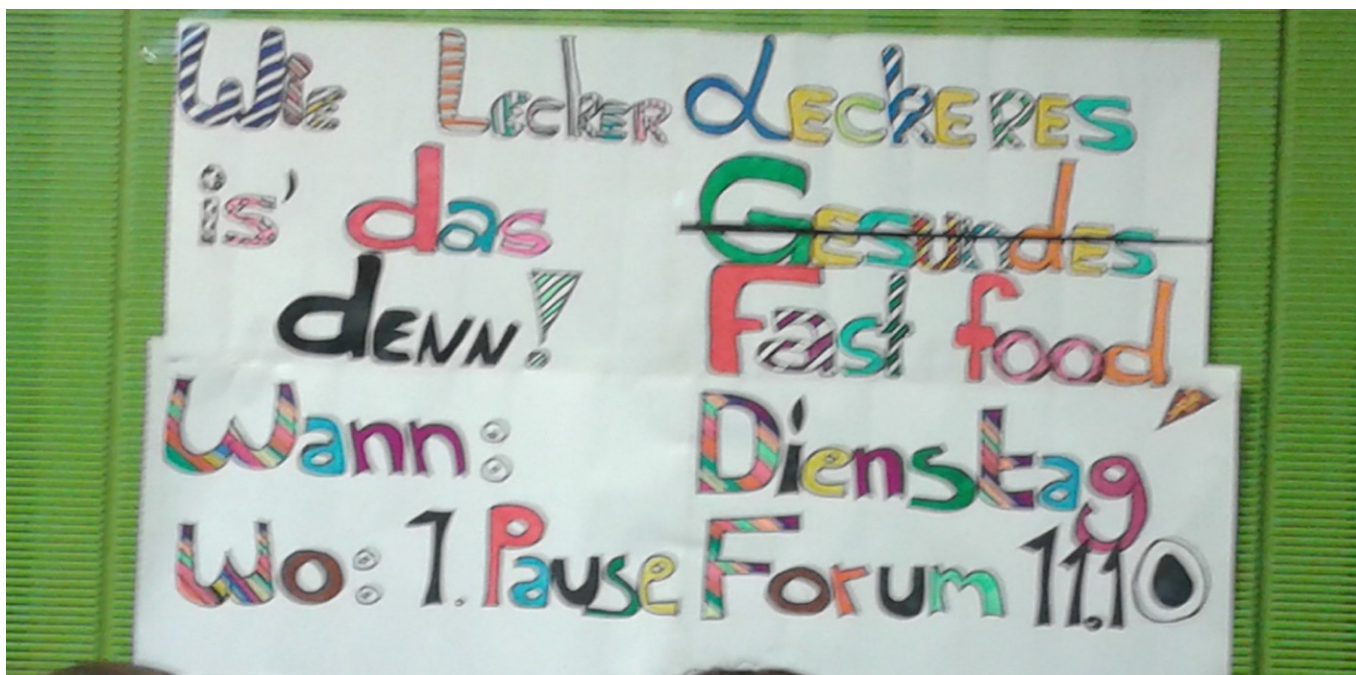 Wie Lecker Leckeres
is' das Gesundes
denn! Fast food
Wann: Dienstag
Wo: 1. Pause Forum 11.10